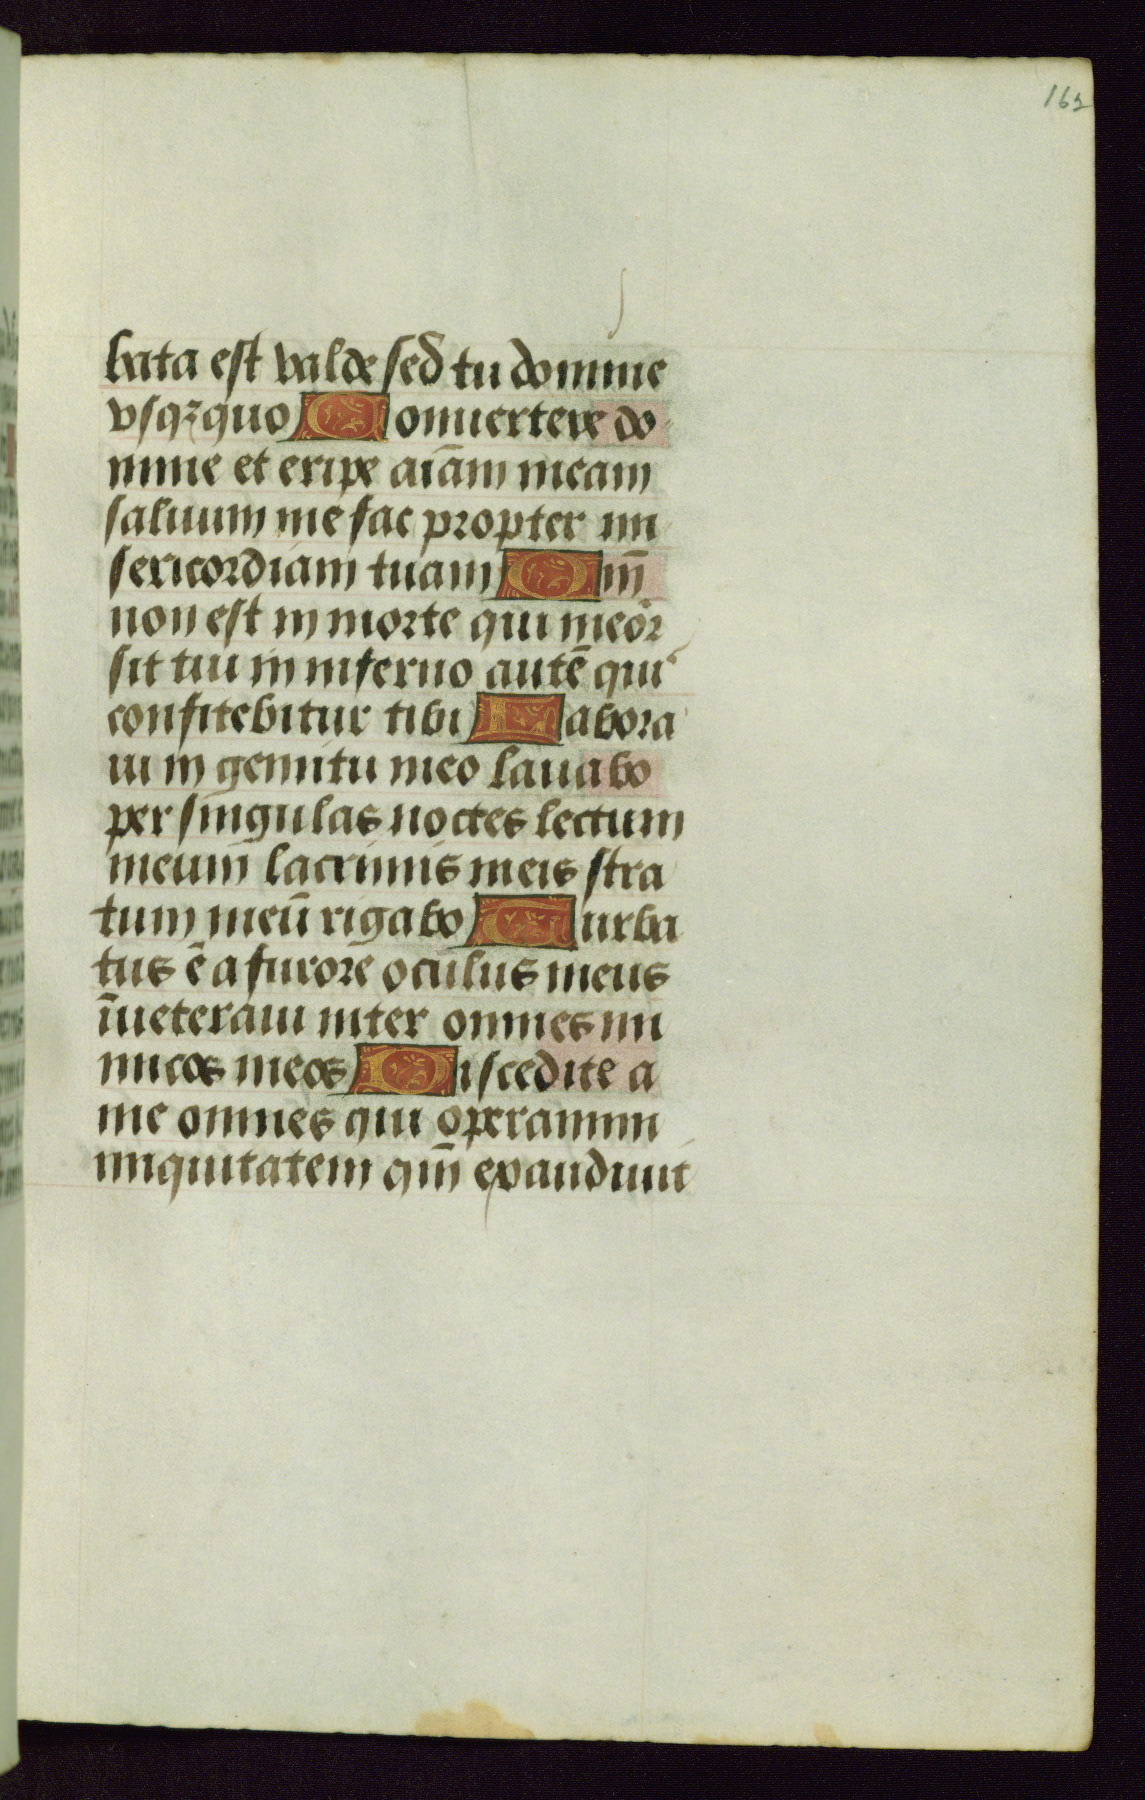 162
bata est valde sed tu domine
vsqꝫquo Conuertere do
mine et eripe aīam meam
saluum me fac propter mi
sericordiam tuam Qm̄
non est in morte qui meōr
sit tui in inferno autē quis
confitebitur tibi Labora
ui in gemitu meo lauabo
per singulas noctes lectum
meum lacrimis meis stra
tum meū rigabo Turba
tus ē a furore oculus meus
īueteraui inter omnes ini
micos meos Discedite a
me omnes qui operamini
iniquitatem qm̄ exaudiuit